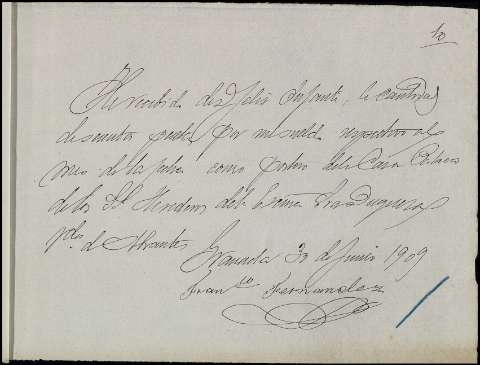 10
He recibido de D. Felix Infante, la cantidad
de
pesetas por mi sueldo respectivo al
mes de la fecha como portero de la Casa
de los Sres. Herederos de la Excma. Sra. Duquesa
de Abrantes
Granada 30 de Junio 1909
Franco Fernandez